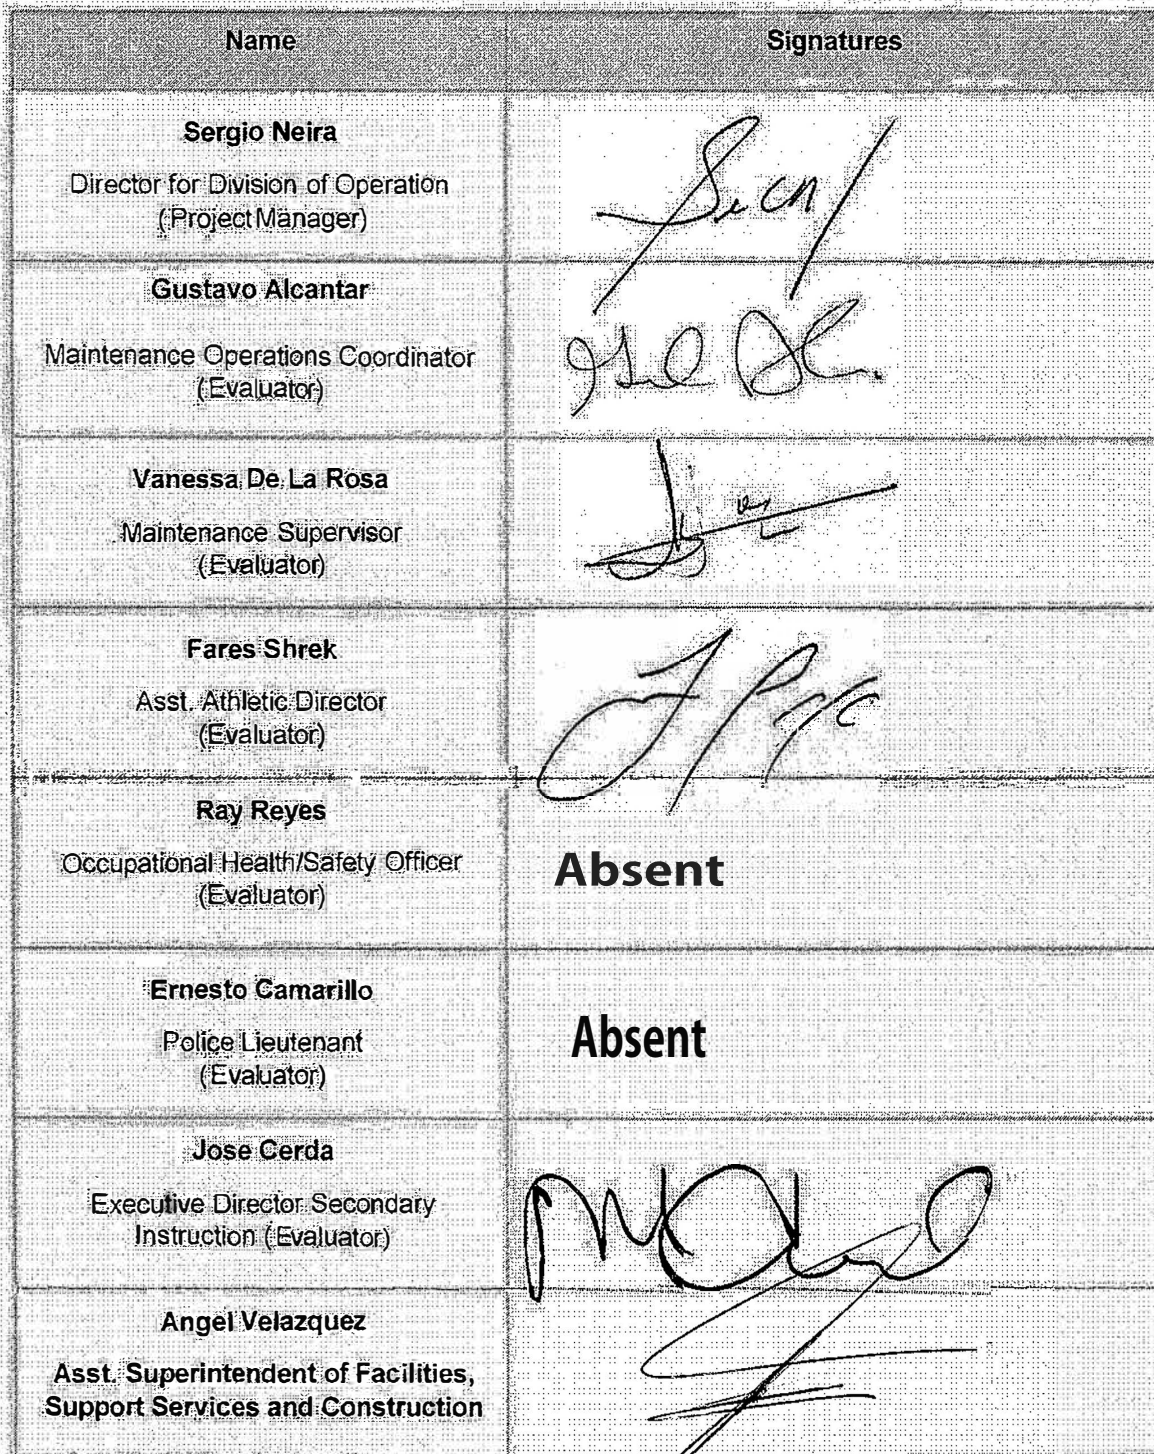 Name
Signatures
Sergio Neira
Director for Division of Operation
(Project Manager)
Gustavo Alcantar
Maintenance Operations Coordinator
(Evaluator)
Vanessa De La Rosa
Maintenance Supervisor
(Evaluator)
Fares Shrek
Asst. Athletic Director
(Evaluator)
Ray Reyes
Occupational Health/Safety Officer
(Evaluator)
Absent
Ernesto Camarillo
Police Lieutenant
(Evaluator)
Absent
Jose Cerda
Executive Director Secondary
Instruction (Evaluator)
Angel Velazquez
Asst. Superintendent of Facilities,
Support Services and Construction